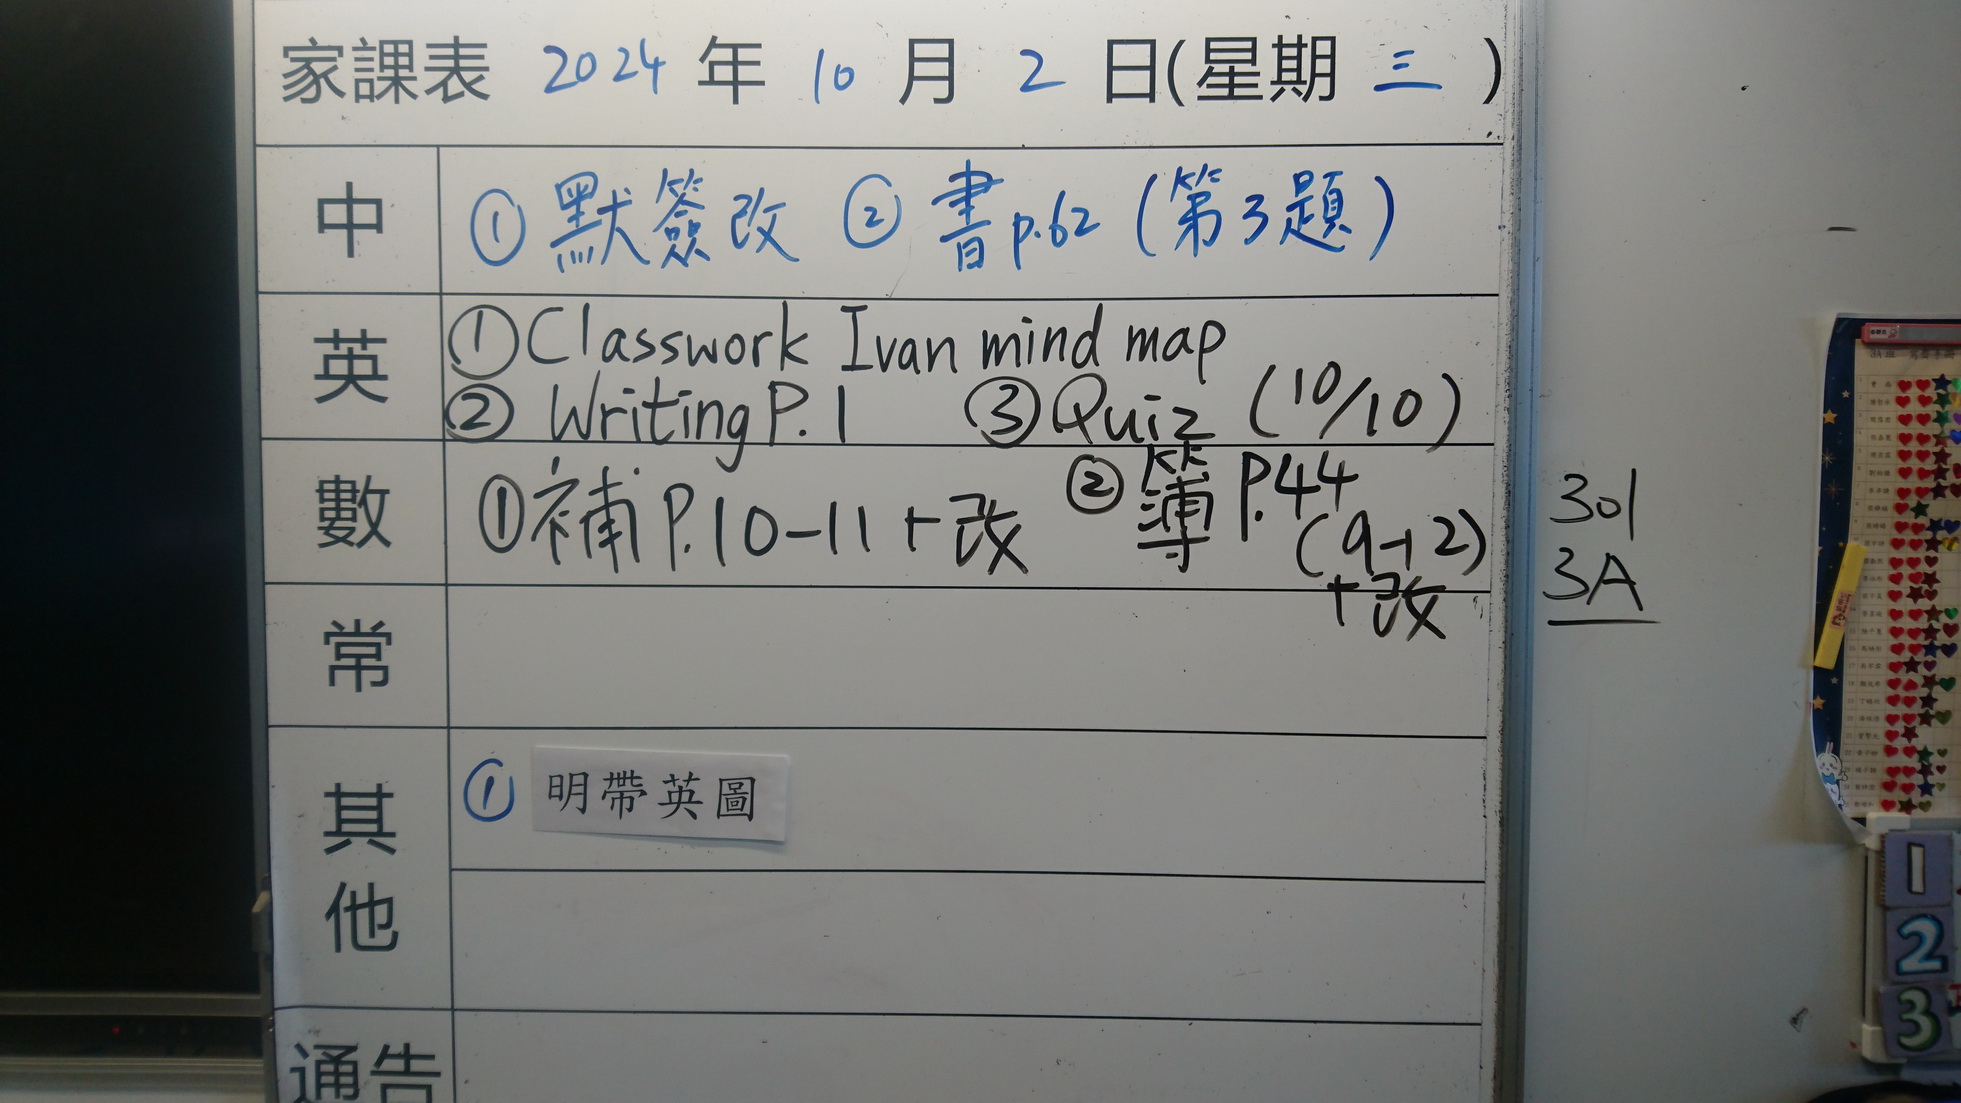 家課表 2024 年 10 月 2 日(星期 三 )
中 ① 默簽改 ② 書p.62 (第3題)
英 ① Classwork Ivan mind map
② Writing P.1 ③ Quiz (10/10)
數 ① 補 P.10-11+改 ② 簿 P.44
(9-12)
+改
301
3A
常
其他 ① 明帶英圖
通告
1
2
3